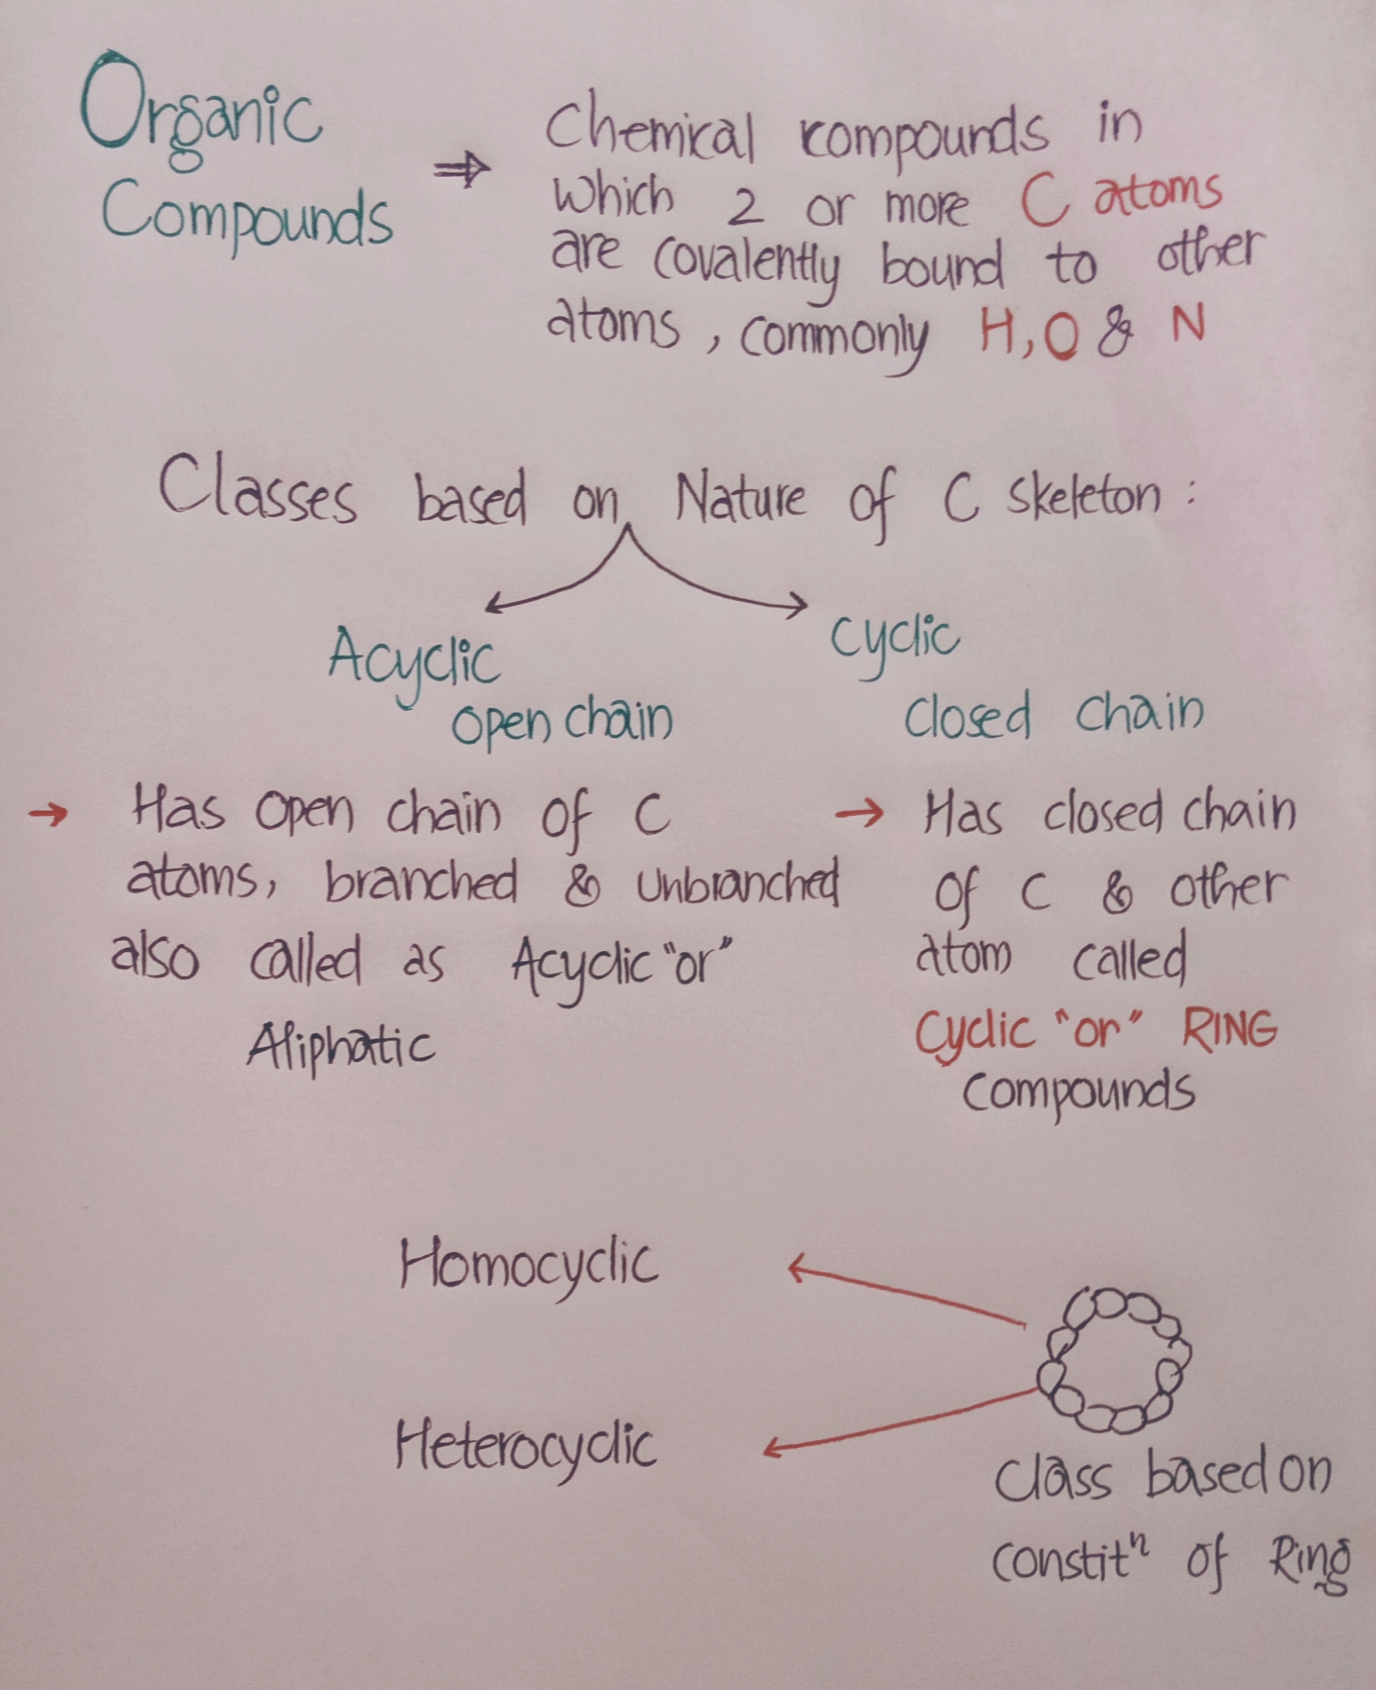 Organic
Compounds
⇒ Chemical compounds in
which 2 or more C atoms
are covalently bound to other
atoms, commonly H, O & N
Classes based on Nature of C skeleton :
Acyclic
open chain
Cyclic
closed chain
→ Has open chain of C
atoms, branched & unbranched
also called as Acyclic "or"
Aliphatic
→ Has closed chain
of C & other
atom called
Cyclic "or" RING
compounds
Homocyclic
Heterocyclic
Class based on
constitⁿ of Ring